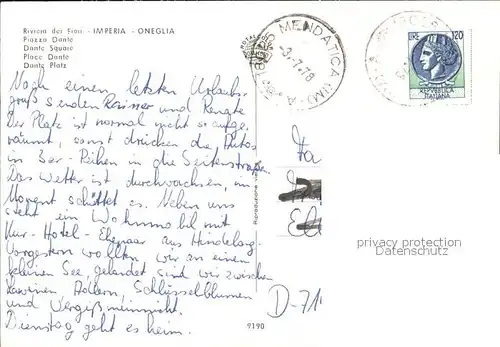 Riviera dei Fiori - IMPERIA - ONEGLIA
Piazza Dante
Dante Square
Place Dante
Dante Platz
Noch einen letzten Urlaubs-
gruß senden Reiner und Renate
Der Platz ist normal nicht so aufge-
räumt, sonst drücken die Autos
in 3er-Reihen in die Seitenstraßen.
Das Wetter ist durchwachsen, im
Moment schüttet es. Neben uns
steht ein Wohnmobil mit
Kur-Hotel-Ehepaar aus Hindelang.
Vorgestern wollten wir an einen
kleinen See, gelandet sind wir zwischen
Lawinen Adlern, Schlüsselblumen
und Vergißmeinnicht.
Dienstag geht es heim.
MENDATICA (IM)
-3.-7.78
LIRE 120
REPVBBLICA
ITALIANA
Fa
D-71
Riproduzione
9190
privacy protection
Datenschutz